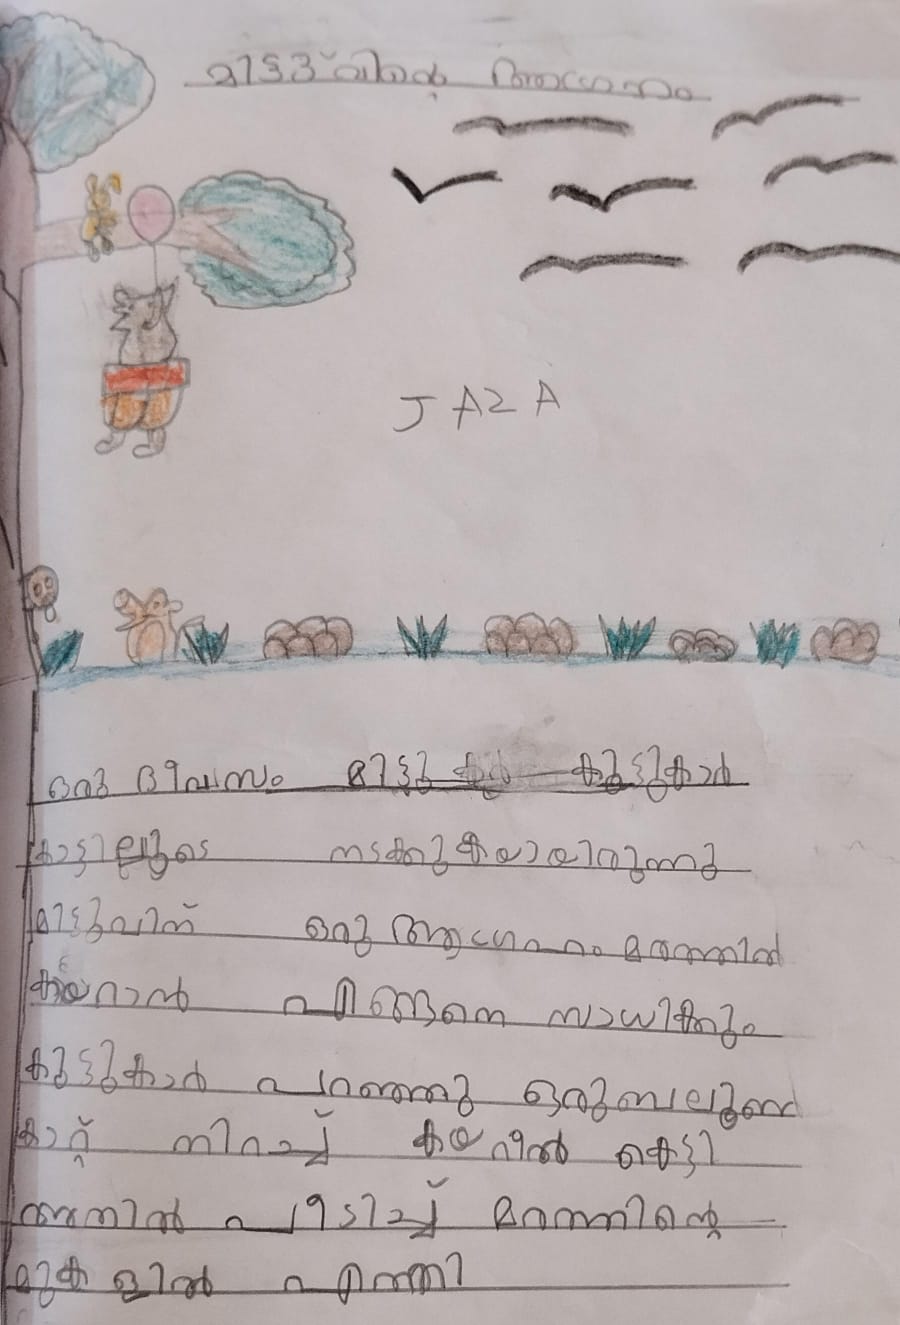 മിട്ടുവിന്റെ ആഗ്രഹം
JAZA
ഒരു ദിവസം മിട്ടു കൂട്ടുകാർ
നടക്കുകയായിരുന്നു
മിട്ടുവിന് ഒരു ആഗ്രഹം മരത്തിൽ
കയറാൻ എങ്ങനെ സാധിക്കും
കൂട്ടുകാർ പറഞ്ഞു ഒരു ബലൂൺ
കാറ്റ് നിറച്ച് കയറിൽ കെട്ടി
അതിൽ പിടിച്ച് മരത്തിന്റെ
മുകളിൽ എത്തി